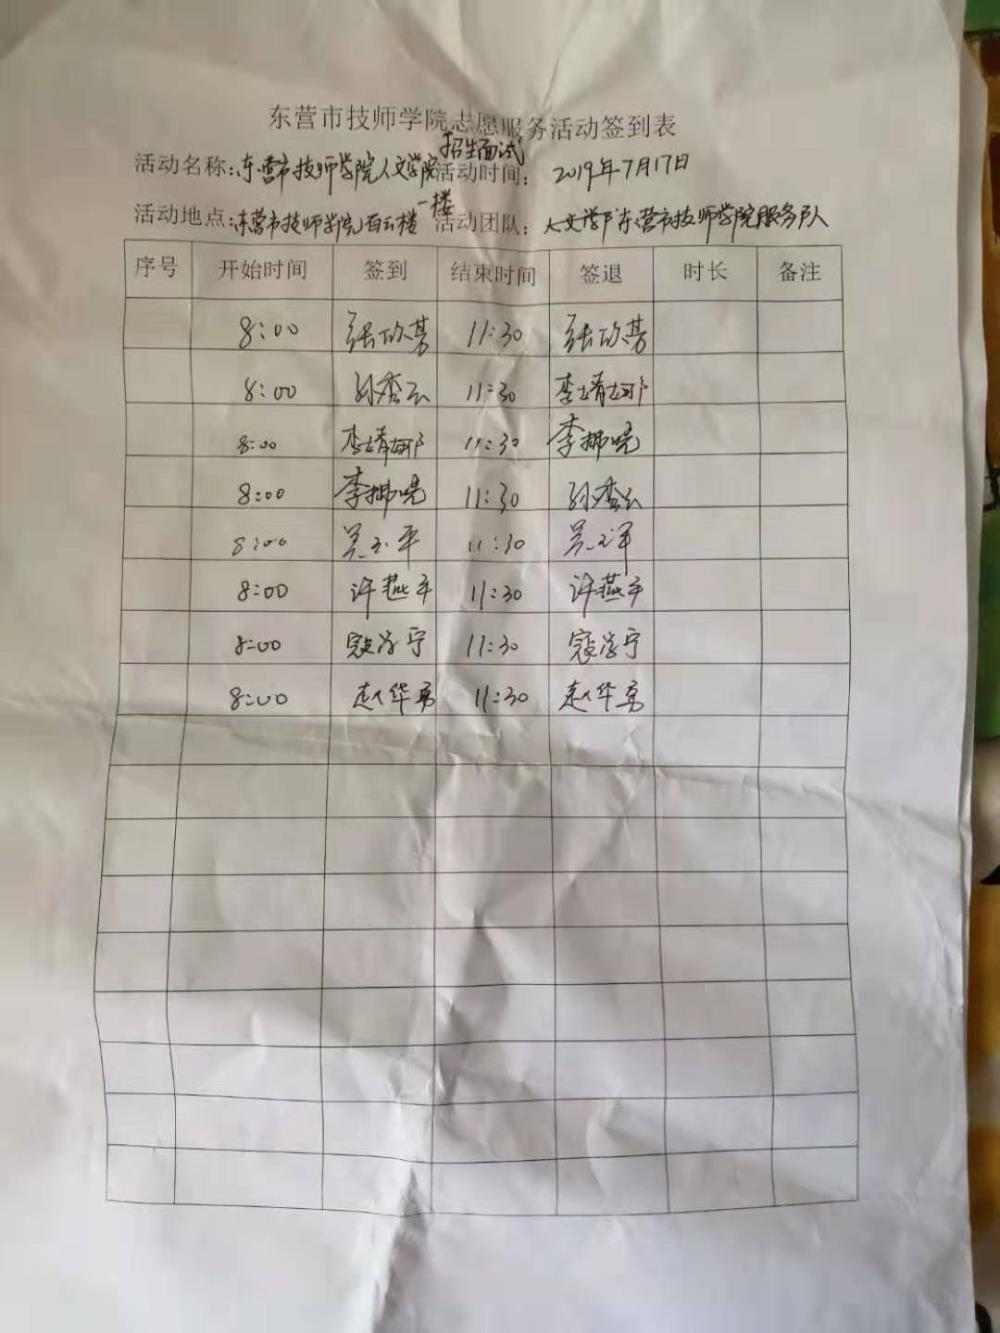 东营市技师学院志愿服务活动签到表
招生面试
活动名称：东营市技师学院人文学院 活动时间： 2019年7月17日
一楼
活动地点：东营市技师学院百云楼 活动团队：人文学院东营市技师学院服务队
序号 开始时间 签到 结束时间 签退 时长 备注
8:00 张欣芳 11:30 张欣芳
8:00 孙秀云 11:30 李婧娜
8:00 李婧娜 11:30 李拂晓
8:00 李拂晓 11:30 孙秀云
8:00 吴玉平 11:30 吴玉平
8:00 许燕平 11:30 许燕平
8:00 寇学宁 11:30 寇学宁
8:00 赵华勇 11:30 赵华勇